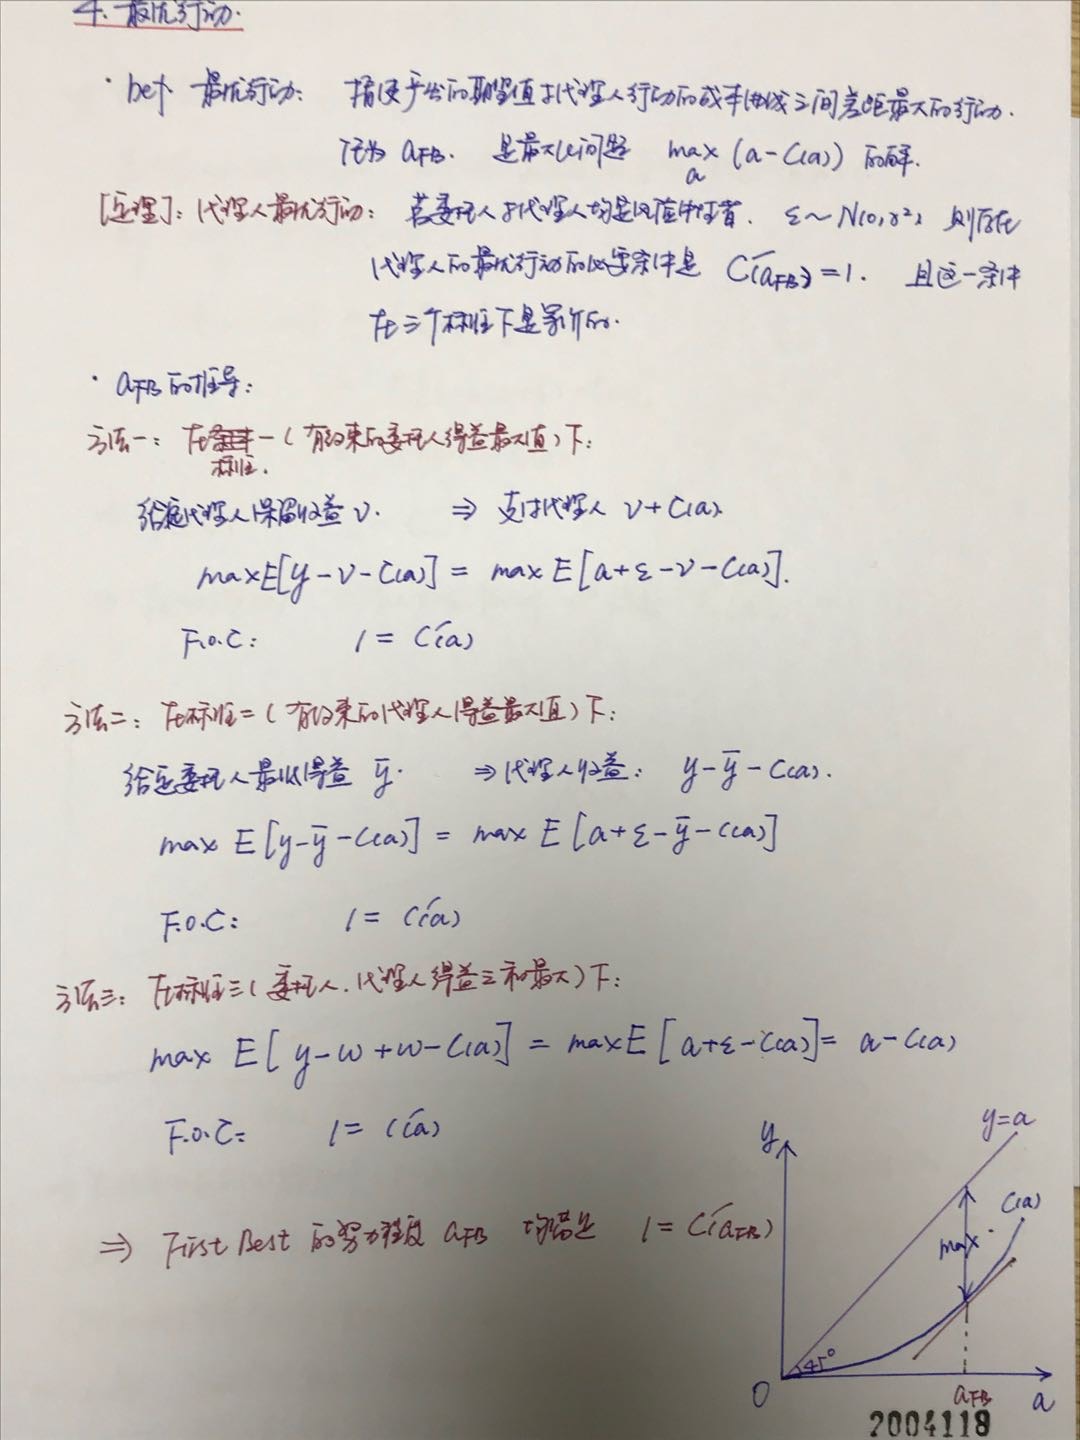 4. 最优行动.
· Def 最优行动: 指使产出的期望值与代理人行动的成本曲线之间差距最大的行动.
记为 aFB. 是最大化问题 max (a-C(a)) 的解.
a
[定理]: 代理人最优行动: 若委托人与代理人均是风险中性者. ε~N(0,σ²), 则存在
代理人的最优行动的必要条件是 C'(aFB)=1. 且这一条件
在三个标准下是等价的.
· aFB的推导:
方法一: 在标准一(有约束的委托人得益最大值)下:
给定代理人保留收益 ν. ⇒ 支付代理人 ν+C(a)
max E[y-ν-C(a)] = max E[a+ε-ν-C(a)].
F.O.C: 1 = C'(a)
方法二: 在标准二(有约束的代理人得益最大值)下:
给定委托人最低得益 ȳ. ⇒ 代理人收益: y-ȳ-C(a).
max E[y-ȳ-C(a)] = max E[a+ε-ȳ-C(a)]
F.O.C: 1 = C'(a)
方法三: 在标准三(委托人.代理人得益之和最大)下:
max E[y-w+w-C(a)] = max E[a+ε-C(a)] = a-C(a)
F.O.C: 1 = C'(a)
⇒ First Best 的努力程度 aFB 均满足 1 = C'(aFB)
y
y=a
C(a)
max
45°
O
aFB
a
2004118